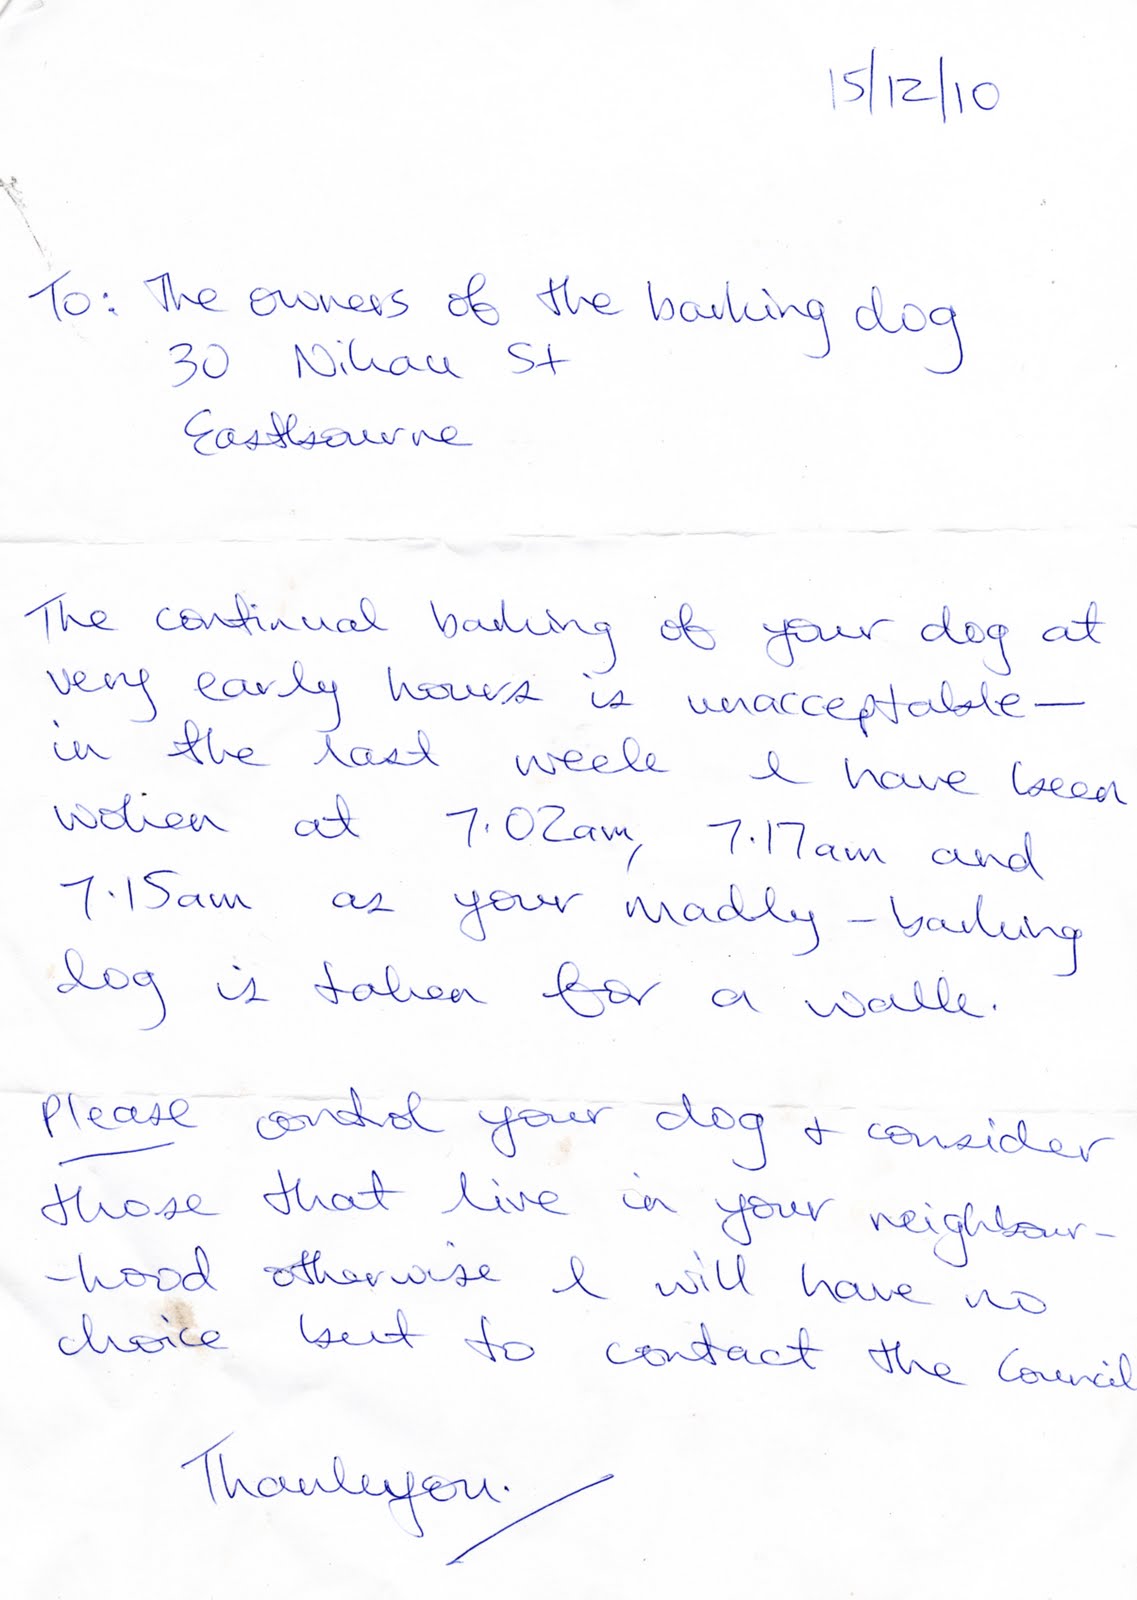 15/12/10
To: The owners of the barking dog
30 Nikau St
Eastbourne
The continual barking of your dog at
very early hours is unacceptable—
in the last week I have been
woken at 7.02am, 7.17am and
7.15am as your madly-barking
dog is taken for a walk.
Please control your dog + consider
those that live in your neighbour-
-hood otherwise I will have no
choice but to contact the Council
Thankyou.